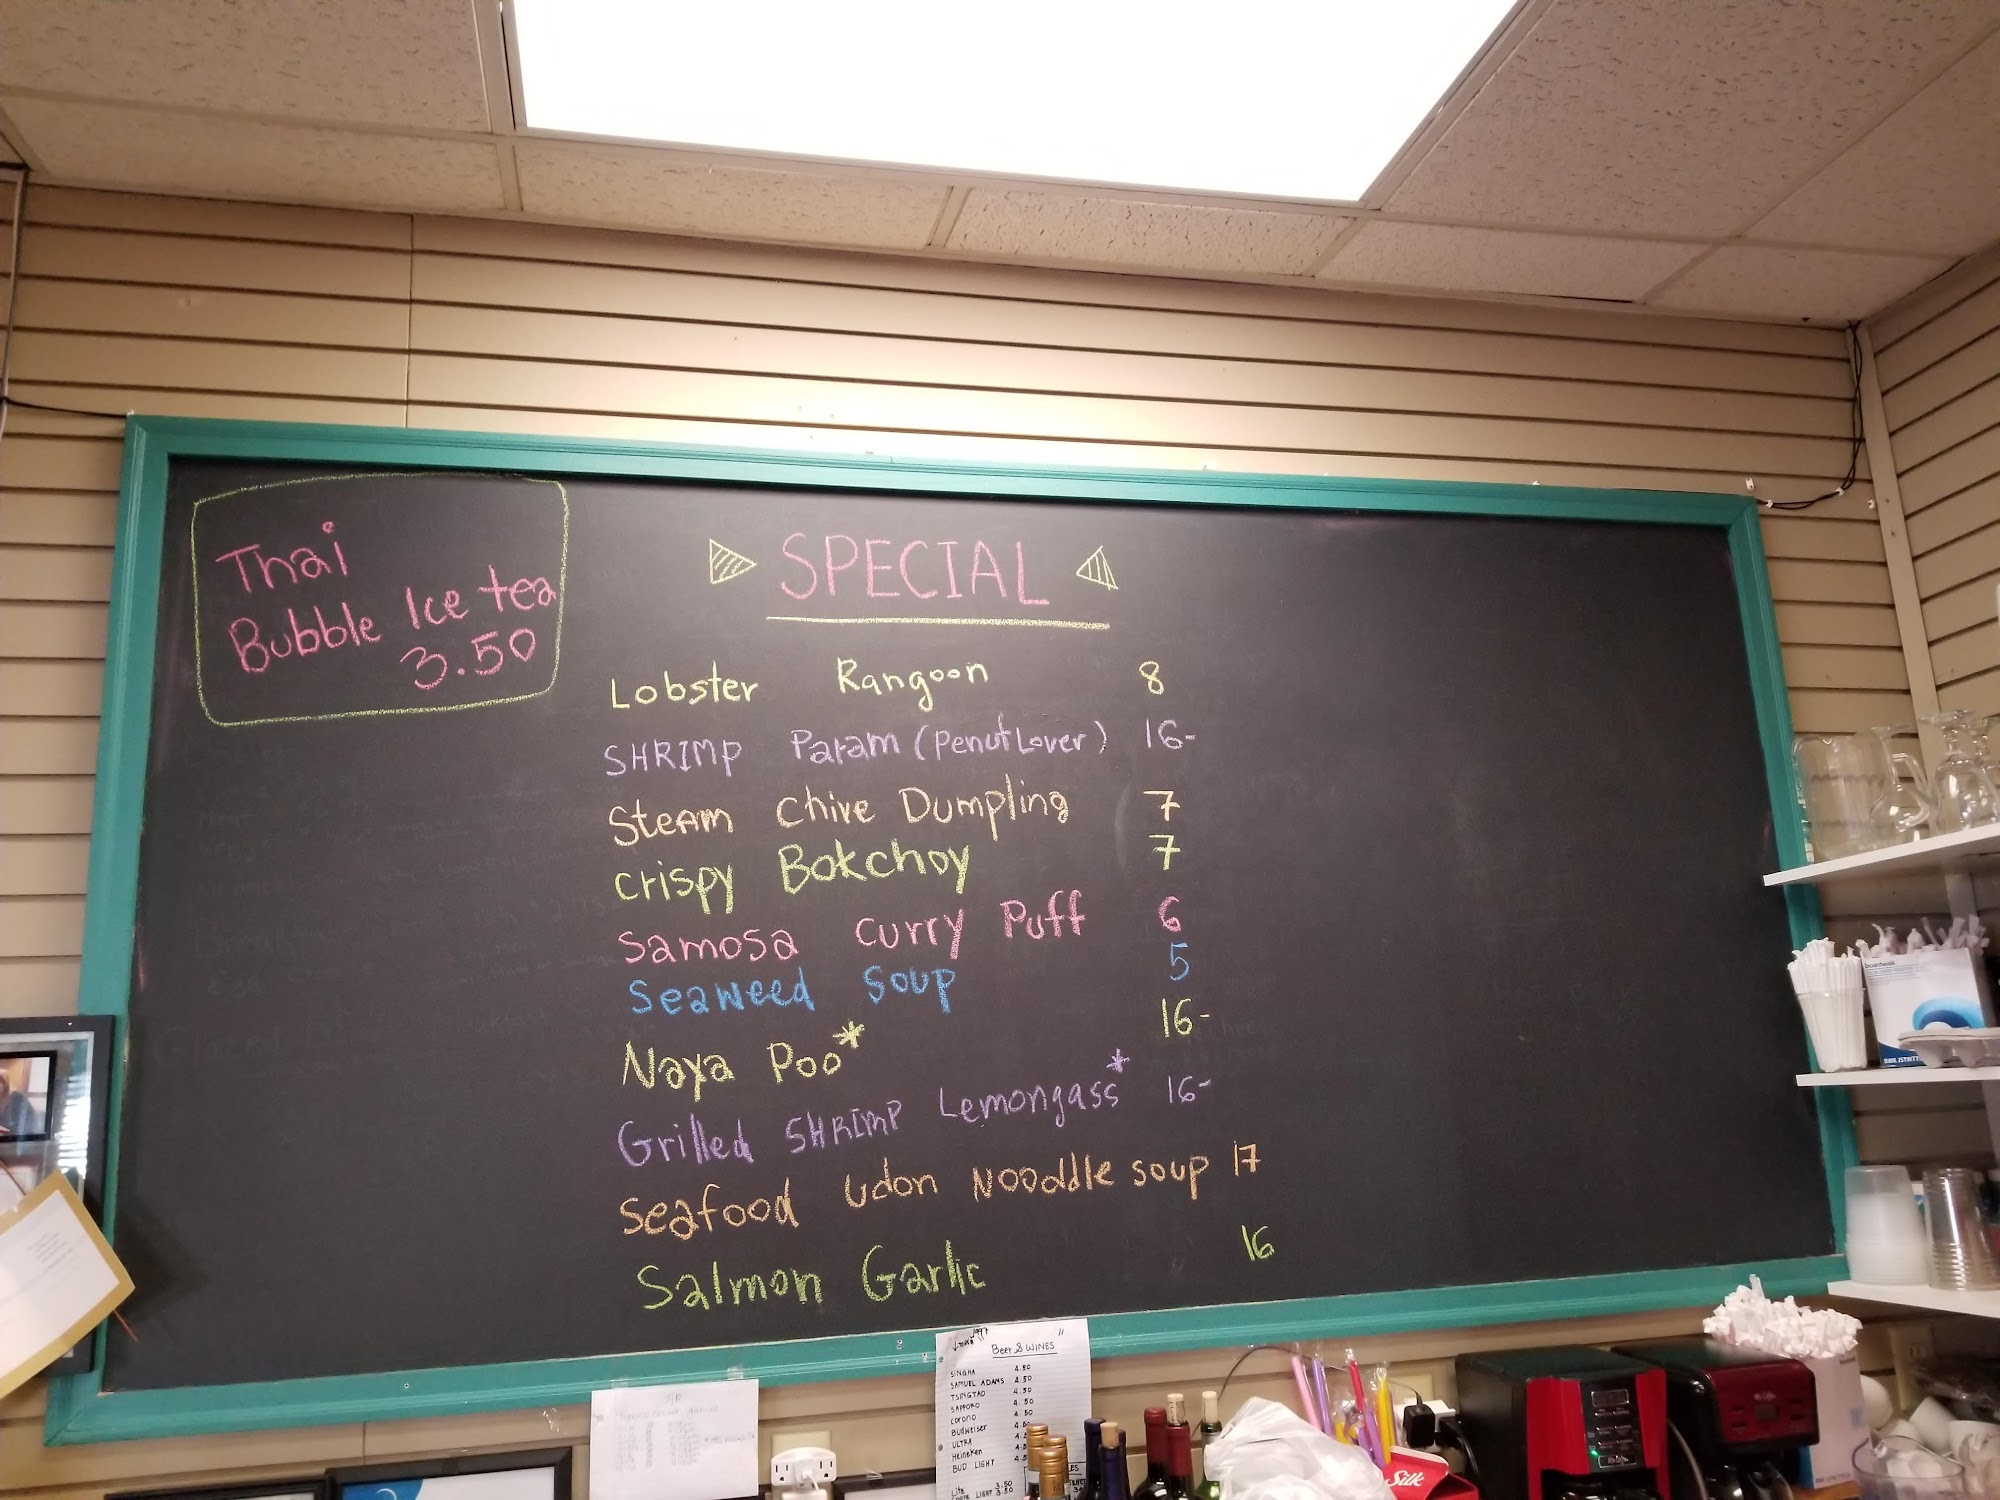 Thai
Bubble Ice tea
3.50
SPECIAL
Lobster Rangoon 8
SHRIMP Param (Penut Lover) 16-
Steam Chive Dumpling 7
Crispy Bokchoy 7
Samosa Curry Puff 6
Seaweed Soup 5
Naya Poo* 16-
Grilled SHRIMP Lemongass* 16-
Seafood Udon Nooddle soup 17
Salmon Garlic 16
1997
Beer & WINES
SINGHA 4.50
SAMUEL ADAMS 4.50
TSINGTAO 4.50
SAPPORO 4.50
CORONO 4.50
Budweiser 4.50
ULTRA
Heineken
BUD LIGHT
Lite 3.50
LIGHT 3.50
boardwalk
Silk